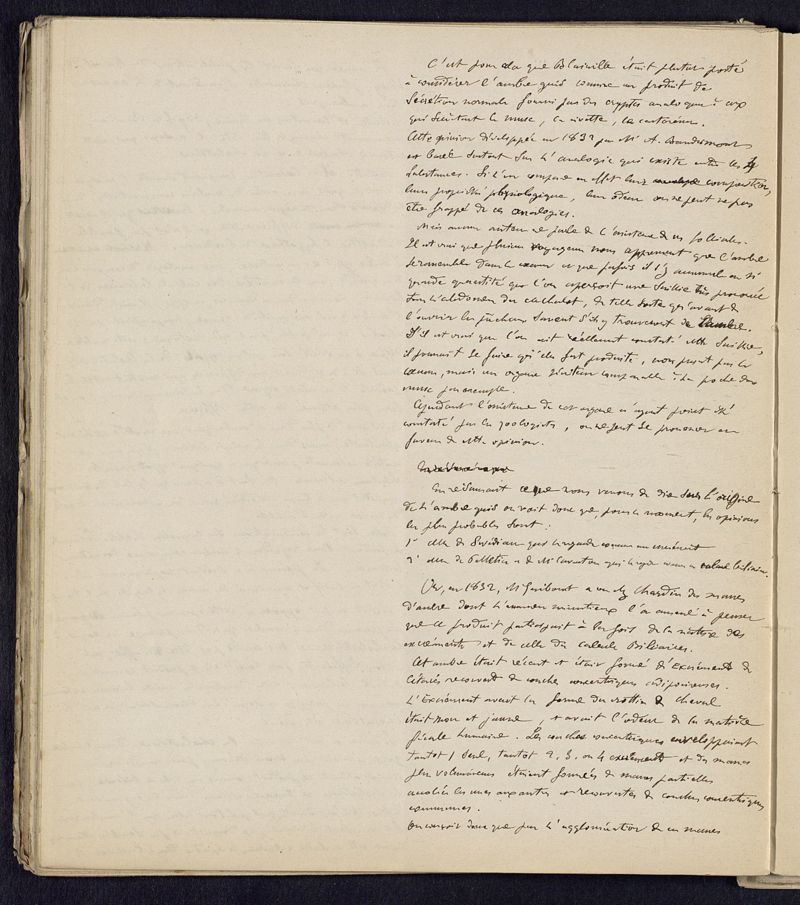 C'est pour cela que Blainville était plutôt porté
à considérer l'ambre gris comme un produit de
Sécrétion normale fourni par des cryptes analogues à ceux
qui sécrètent le musc, la civette, le castoréum.
Cette opinion développée en 1832 par Mr A. Baudrimont
est basée surtout sur l'analogie qui existe entre les 4
substances. Si l'on compare en effet leur composition,
leurs propriétés physiologiques, leur odeur on ne peut ne pas
être frappé de ces analogies.
Mais aucun auteur ne parle de l'existence de ces follicules.
Il est vrai que plusieurs voyageurs nous apprennent que l'ambre
se rassemble dans le cæcum et que parfois il s'y accumule en si
grande quantité que l'on aperçoit une Saillie très prononcée
sur l'abdomen du cachalot, de telle sorte qu'avant de
l'ouvrir les pêcheurs savent s'ils y trouveront de l'ambre.
S'il est vrai que l'on ait réellement constaté cette Saillie,
il pourrait se faire qu'elle fut produite, non point par le
cæcum, mais un organe sécréteur comparable à la poche du
musc par exemple.
Cependant l'existence de cet organe n'ayant point été
constatée par les zoologistes, on ne peut se prononcer en
faveur de cette opinion.
En résumant ce que nous venons de dire sur l'origine
de l'ambre gris on voit donc que, pour le moment, les opinions
les plus probables sont :
1° celle de Swediaur qui le regarde comme un excrément
2° celle de Pelletier et de Mr Caventou qui le regarde comme un calcul biliaire.
Or, en 1832, Mr Guibourt a vu chez Chardin des masses
d'ambre dont l'examen minutieux l'a amené à penser
que ce produit participait à la fois de la nature des
excréments et de celle du calcul Biliaires.
Cet ambre était récent et était formé d'Excréments de
Cétacés recouverts de couches concentriques adipocireuses.
L'Excrément avait la forme du crottin de cheval
était mou et jaune, et avait l'odeur de la matière
fécale humaine. Les couches concentriques enveloppaient
tantôt 1 seul, tantôt 2, 3, ou 4 excréments et des masses
plus volumineuses étaient formées de masses partielles
accolées les unes aux autres et recouvertes de couches concentriques
communes.
On conçoit donc que par l'agglomération de ces masses